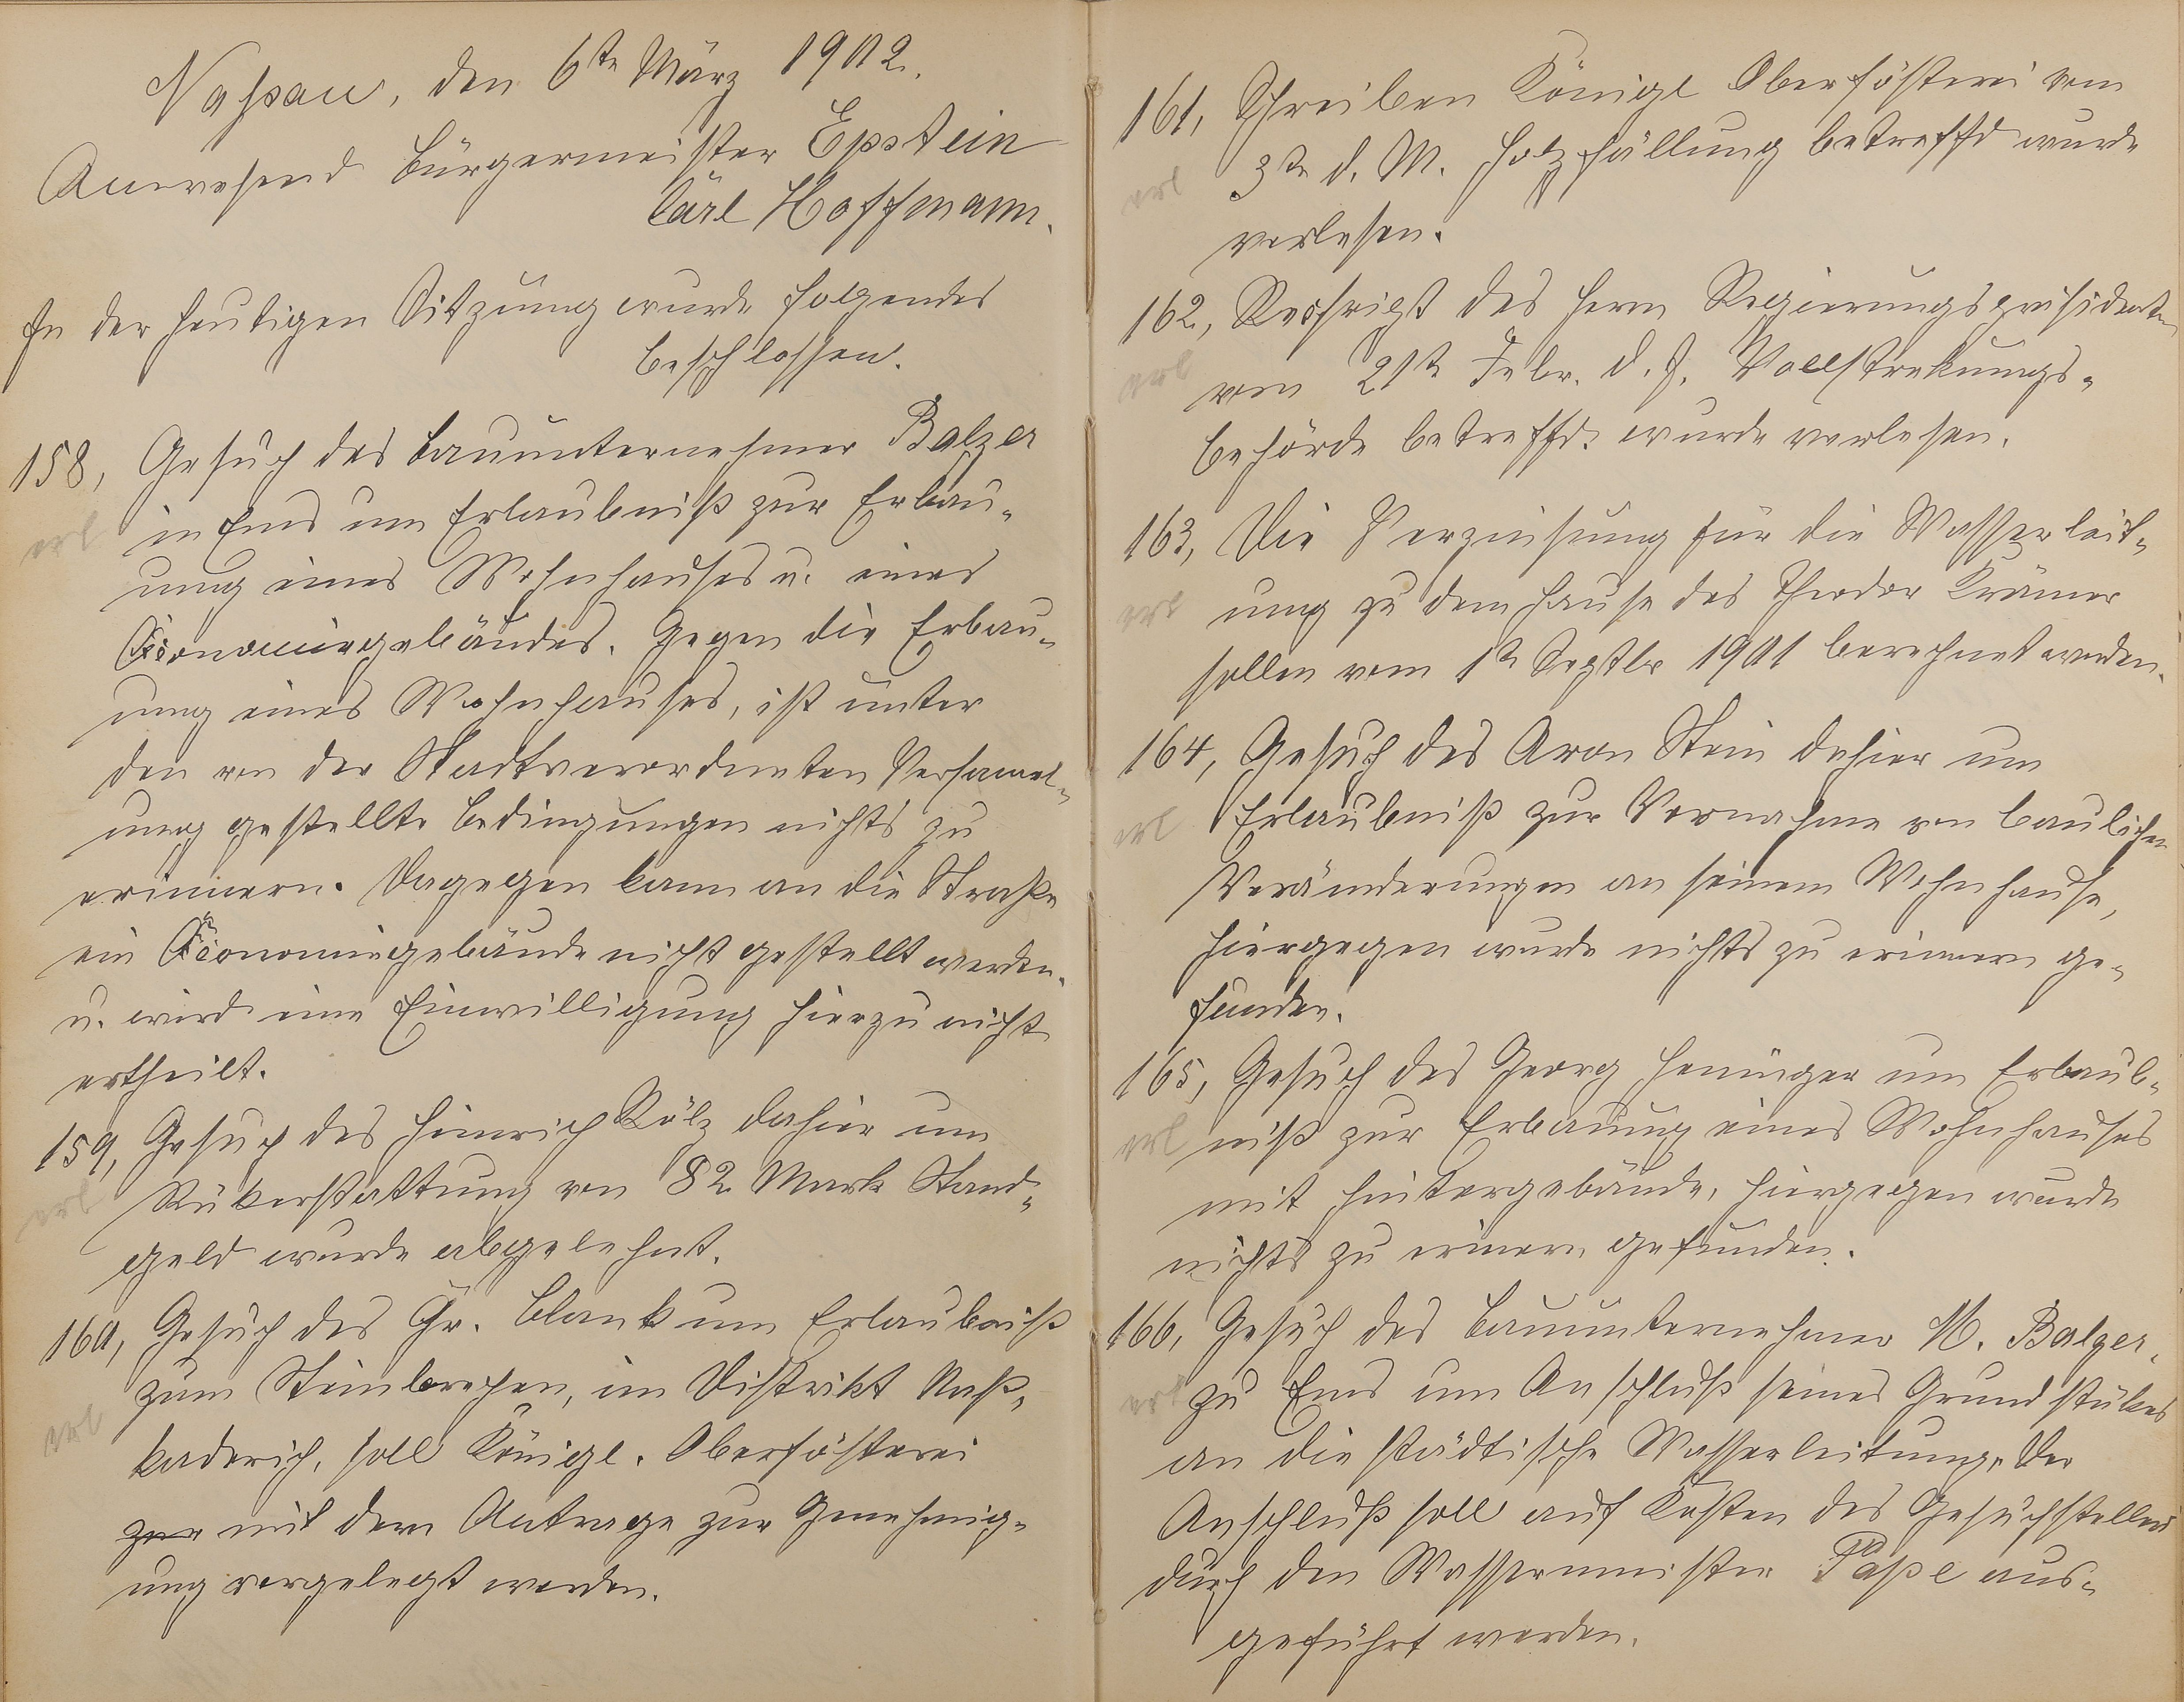 Naßau, den 6te März 1902.
Anwesend Bürgermeister Epstein
Carl Hoffmann.
In der heutigen Sitzung wurde folgendes
beschlossen.
158, Gesuch des Bauunternehmer Balzer
erl
in Ems um Erlaubniß zur Erbau-
ung eines Wohnhauses u. eines
Öconomiegebäudes. Gegen die Erbau-
ung eines Wohnhauses, ist unter
den von der Stadtverordneten Versamel-
ung gestellte Bedingungen nichts zu
erinnern. Dagegen kann an die Straße
ein Öconomiegebäude nicht gestellt werden.
u. wird eine Einwilligung hierzu nicht
ertheilt.
159, Gesuch des Heinrich Kölz dahier um
erl
Rükerstattung von 82 Mark Stand-
geld wurde abgelehnt.
160, Gesuch des Gr. Blank um Erlaubniß
zum Steinbrechen, im Distrikt Naß-
erl
kaderich, soll Königl. Oberfösterei
zur mit dem Antrage zur Genehmig-
ung vorgelegt werden.
161, Schreiben Königl Oberfösterei vom
erl
3te d. M. Holzfällung betreffd wurde
verlesen.
162, Reskript des Herrn Regierungspräsidenten
erl
vom 21te Febr. d. J. Vollstrekungs-
behörde betreffd. wurde verlesen.
163, Die Verzinsung für die Wasserleit-
erl
ung zu dem Hause des Theodor Krämer
sollen vom 1te Septbr 1901 berechnet werden.
164, Gesuch des Aron Stein dahier um
erl
Erlaubniß zur Vornahme von baulichen
Veränderungen an seinem Wohnhause,
hiergegen wurde nichts zu erinnern ge-
funden.
165, Gesuch des Georg Heninger um Erlaub-
erl
niß zur Erbauung eines Wohnhauses
mit Hintergebäude, hiergegen wurde
nichts zu erinern gefunden.
166, Gesuch des Bauunternehmer M. Balzer,
erl
zu Ems um Anschluß seines Grundstükes
an die städtische Wasserleitung. Der
Anschluß soll auf Kosten des Gesuchstellers
durch den Wassermeister Pape aus-
geführt werden.